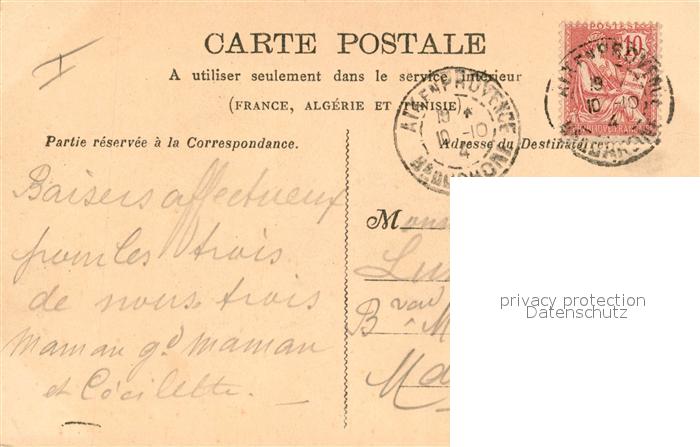 I
CARTE POSTALE
A utiliser seulement dans le service intérieur
(FRANCE, ALGÉRIE ET TUNISIE)
POSTES
10
AIX EN PROVENCE
19
10 -10
4
Bes DU RHONE
AIX EN PROVENCE
19
10 -10
4
Partie réservée à la Correspondance.
Adresse du Destinataire
Baisers affectueux
pour les trois
de nous trois
Maman gd maman
et Cécilette.
M
Bvard M
privacy protection
Datenschutz